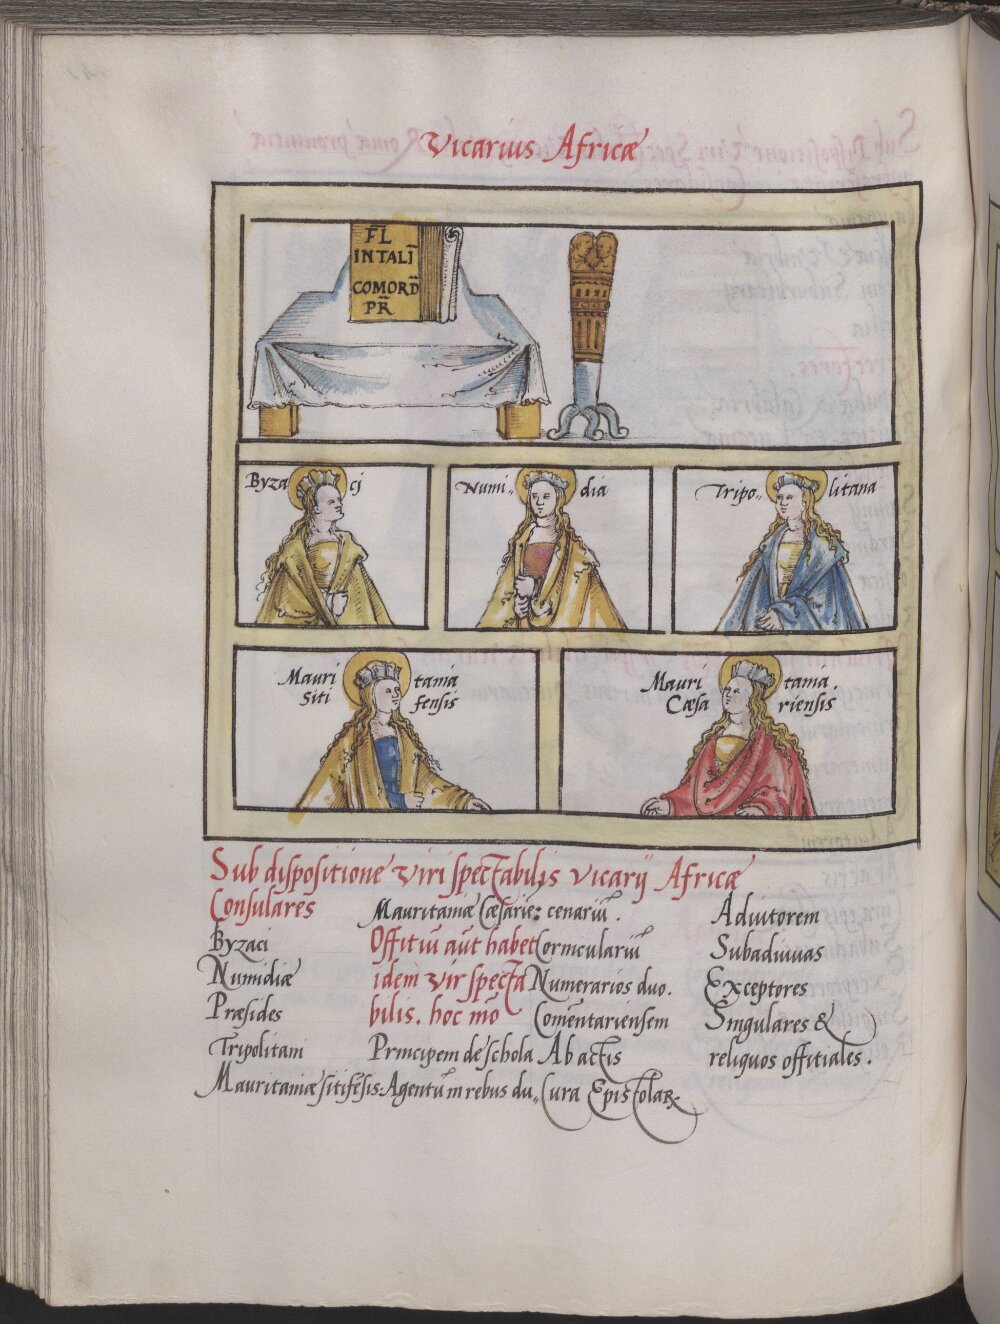 Vicarius Africæ
FL
INTALI̅
COMORD̅
PR̅
Byza cj
Numi- dia
Tripo- litana
Mauri tania
Siti fensis
Mauri tama
Cæsa riensis
Sub dispositione viri spectabilis vicarij Africæ
Consulares
Byzaci
Numidiæ
Præsides
Tripolitani
Mauritaniæ sitifēsis.
Mauritaniæ Cæsariē:
Offitiū aūt habet
idem vir specta
bilis. hoc mō
Principem de schola
Agentū in rebus du„
cenariū.
Corniculariū
Numerarios duo.
Com̄entariensem
Ab actis
Cura Epistolaꝝ
Adiutorem
Subadiuuas
Exceptores
Singulares &
reliquos offitiales.